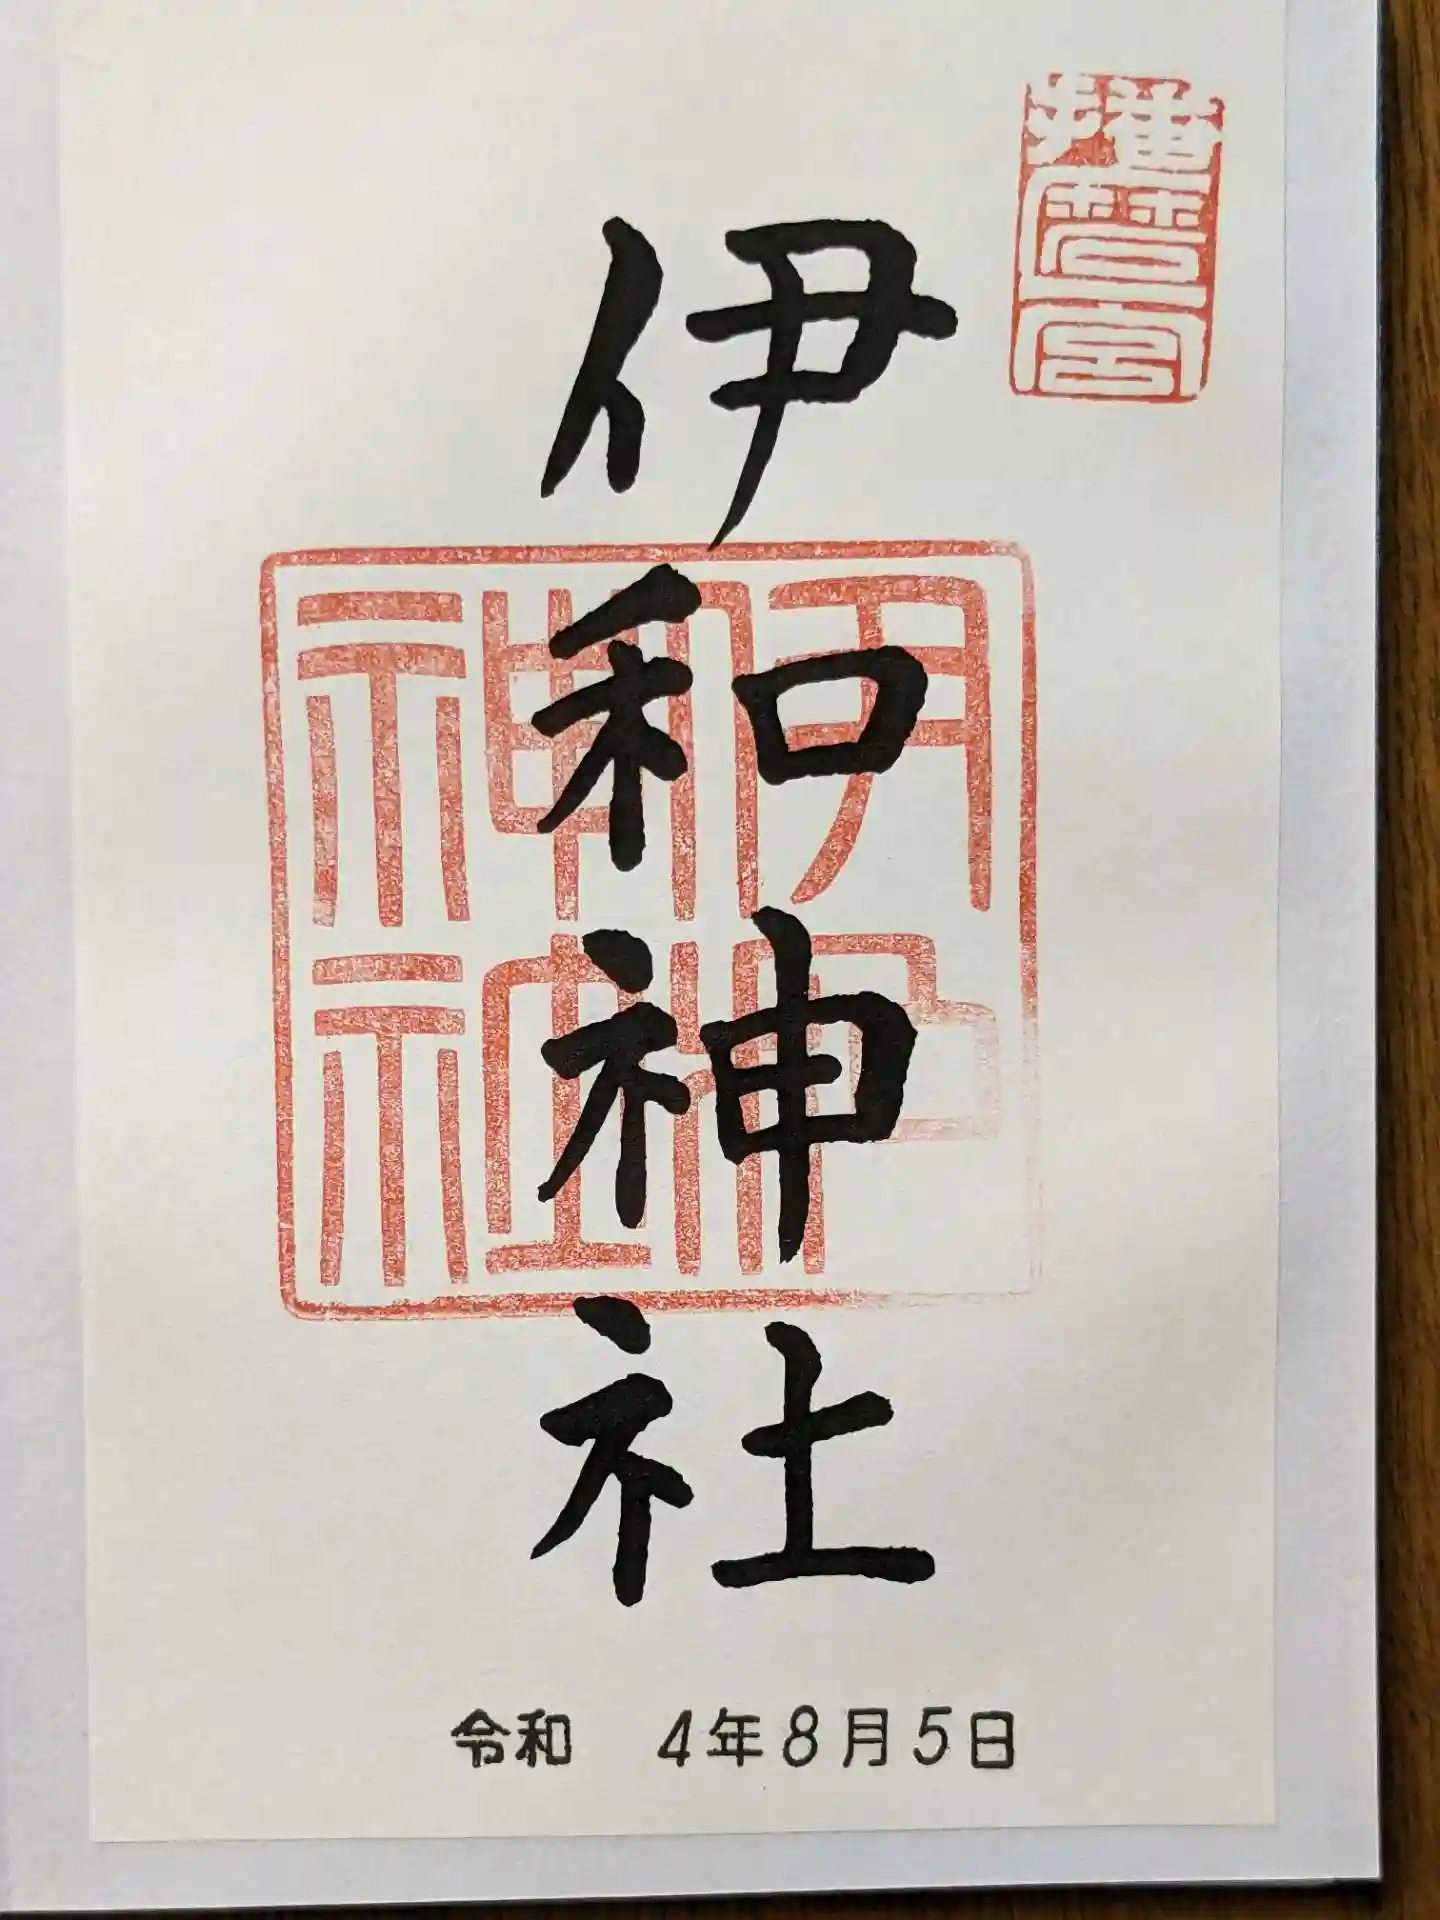 播磨一宮
伊和神社
伊和神社
令和 4年8月5日